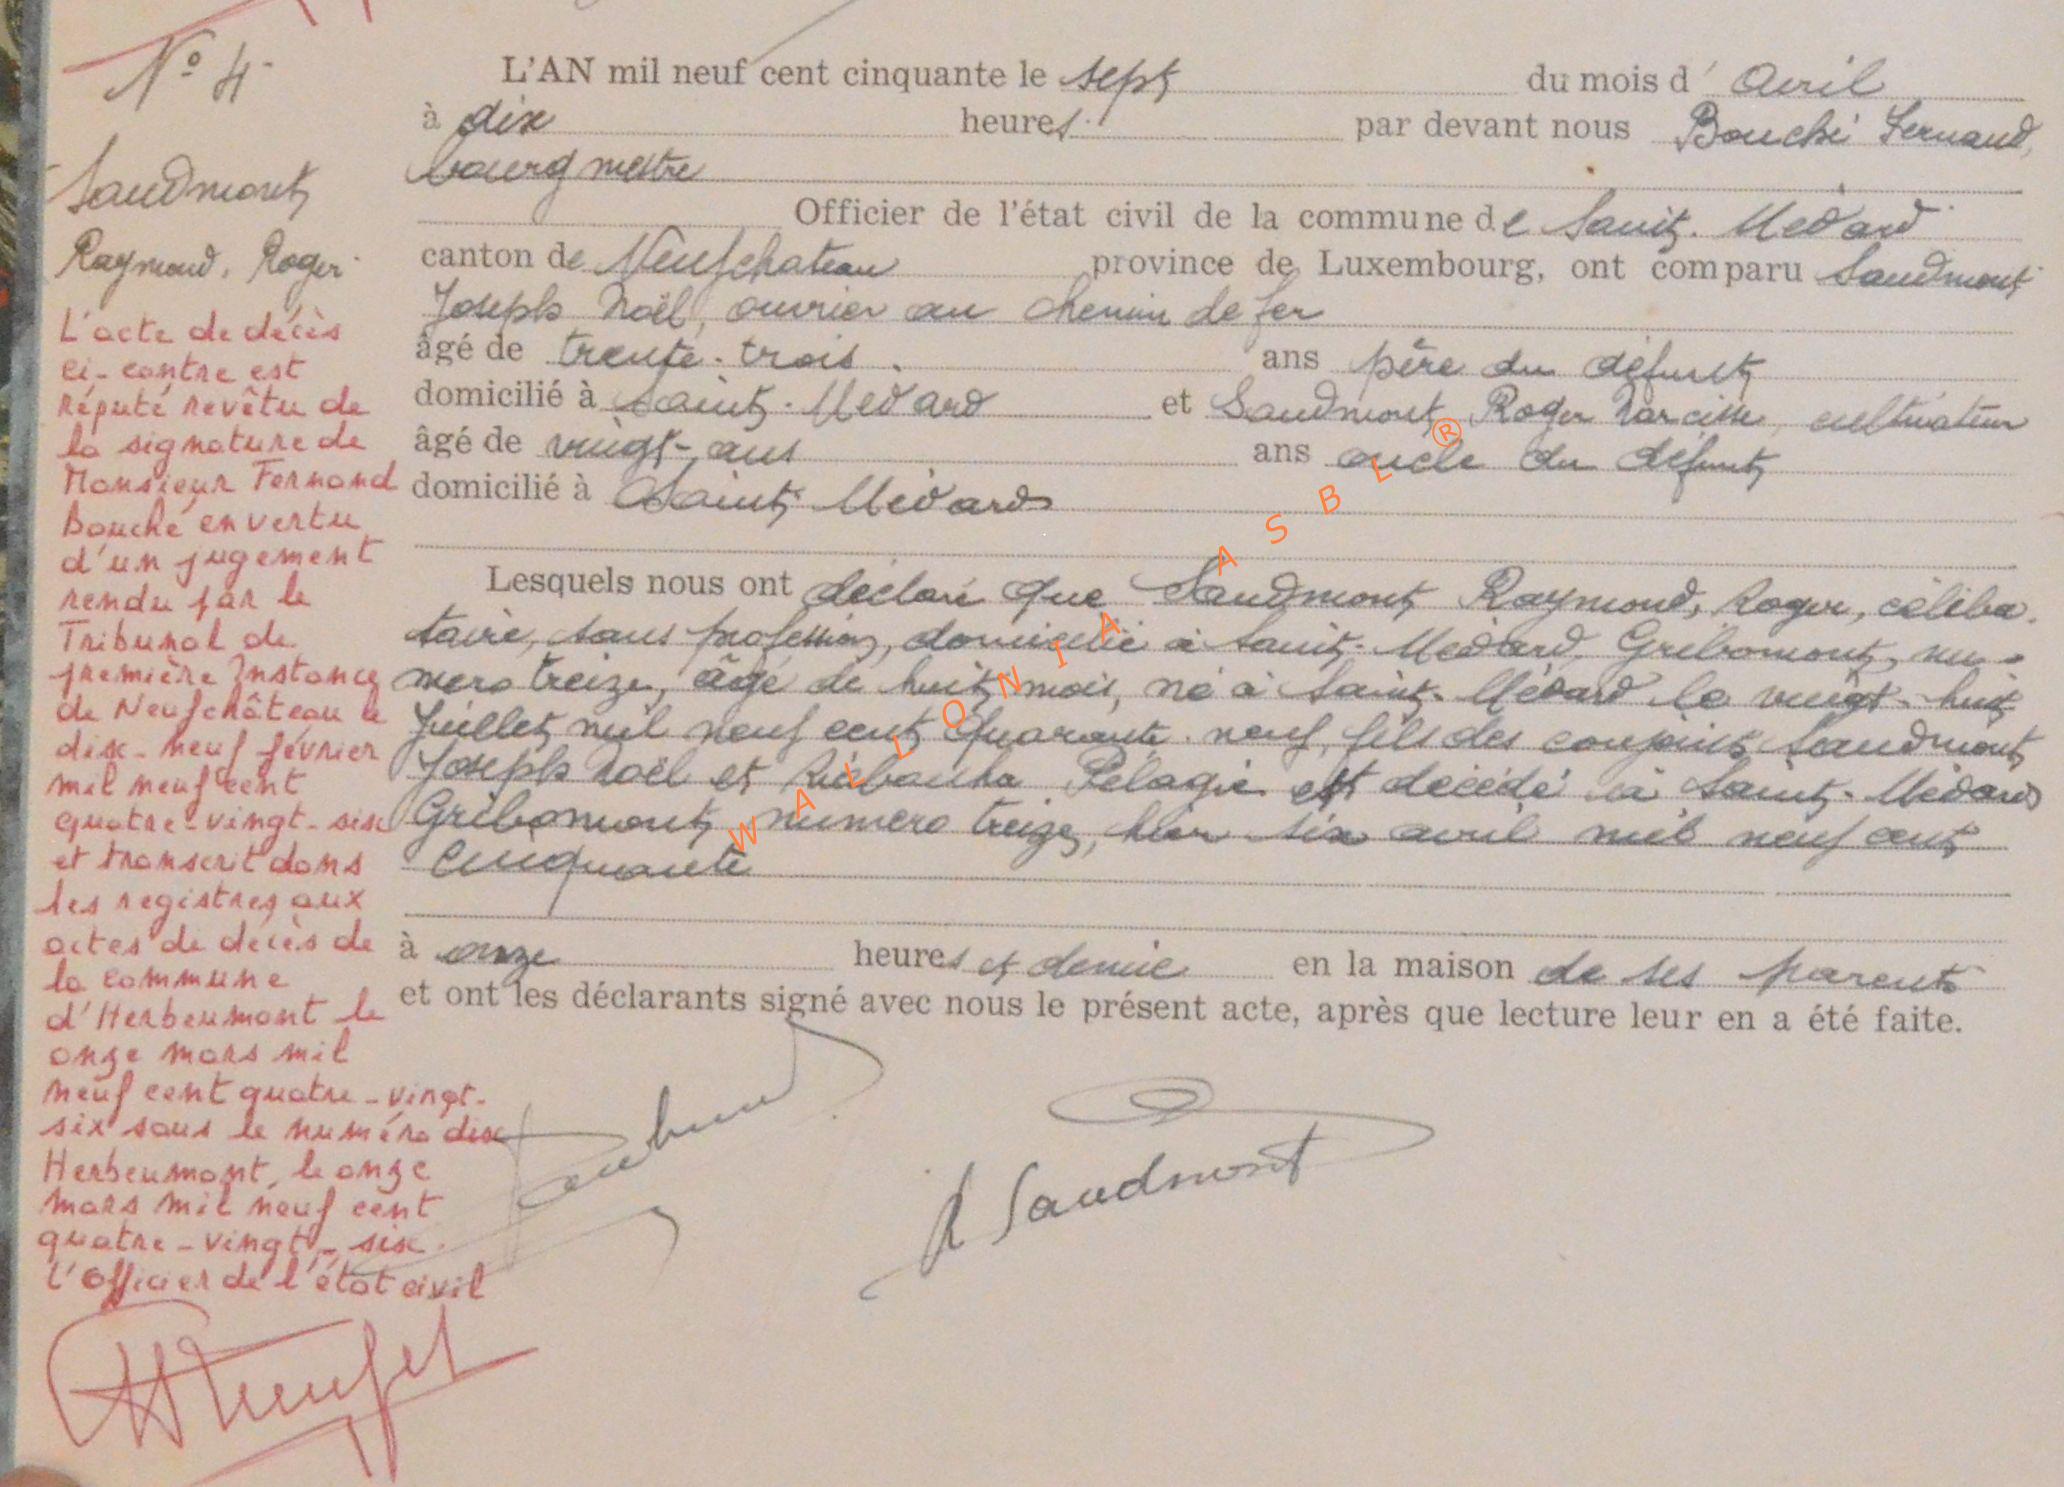 N° 4
Saudmont
Raymond, Roger
L'acte de décès
ci-contre est
réputé revêtu de
la signature de
Monsieur Fernand
Bouché en vertu
d'un jugement
rendu par le
Tribunal de
première Instance
de Neufchâteau le
dix-neuf février
mil neuf cent
quatre-vingt-six
et transcrit dans
les registres aux
actes de décès de
la commune
d'Herbeumont le
onze mars mil
neuf cent quatre-vingt-
six sous le numéro dix
Herbeumont, le onze
mars mil neuf cent
quatre-vingt-six.
L'Officier de l'état civil
L'AN mil neuf cent cinquante le sept du mois d' Avril
à dix heures par devant nous Bouché Fernand,
bourgmestre
Officier de l'état civil de la commune de Saint-Médard
canton de Neufchateau province de Luxembourg, ont comparu Saudmont
Joseph Noël, ouvrier au chemin de fer
âgé de trente-trois ans père du défunt
domicilié à Saint-Médard et Saudmont Roger Narcisse, cultivateur
âgé de vingt-ans ans oncle du défunt
domicilié à Saint-Médard
Lesquels nous ont déclaré que Saudmont Raymond, Roger, céliba-
taire, sans profession, domicilié à Saint-Médard, Gribomont, nu-
mero treize, âgé de huit mois, né à Saint-Médard le vingt-huit
Juillet mil neuf cent quarante-neuf, fils des conjoints Saudmont
Joseph Noël et Pélagie est décédé à Saint-Médard
Gribomont, numero treize, hier six avril mil neuf cent
cinquante
à onze heures et demie en la maison de ses parents
et ont les déclarants signé avec nous le présent acte, après que lecture leur en a été faite.
R Saudmont
WALLONIA ASBL ®